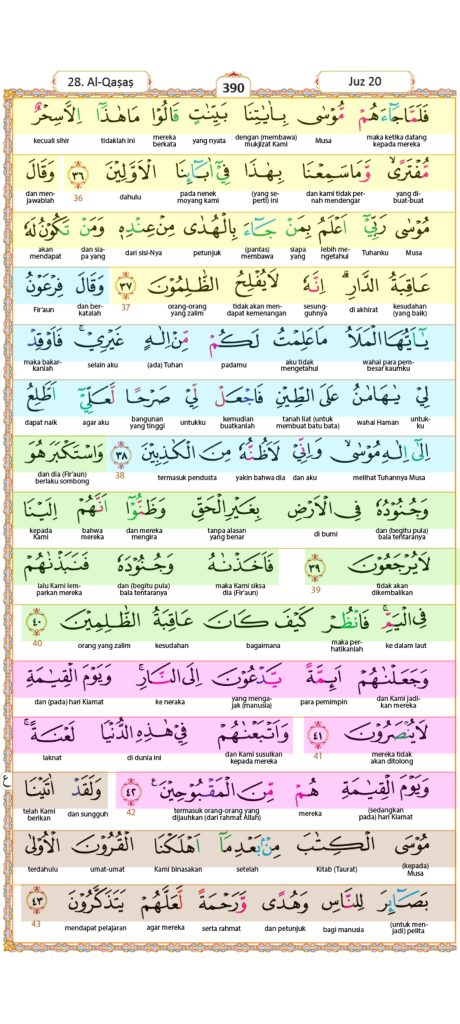 28. Al-Qaṣaṣ
390
Juz 20
فَلَمَّا جَاۤءَهُمْ مُّوْسٰى بِاٰيٰتِنَا بَيِّنٰتٍ قَالُوْا مَا هٰذَآ اِلَّا سِحْرٌ
maka ketika datang kepada mereka Musa dengan (membawa) mukjizat Kami yang nyata mereka berkata tidaklah ini kecuali sihir
مُّفْتَرًى وَّمَا سَمِعْنَا بِهٰذَا فِيْٓ اٰبَاۤىِٕنَا الْاَوَّلِيْنَ ٣٦ وَقَالَ
yang di-buat-buat dan kami tidak per-nah mendengar (yang se-perti) ini pada nenek moyang kami dahulu 36 dan men-jawablah
مُوْسٰى رَبِّيْٓ اَعْلَمُ بِمَنْ جَاۤءَ بِالْهُدٰى مِنْ عِنْدِهٖ وَمَنْ تَكُوْنُ لَهٗ
Musa Tuhanku lebih me-ngetahui siapa (pantas) membawa petunjuk dari sisi-Nya dan sia-pa yang akan mendapat
عَاقِبَةُ الدَّارِۗ اِنَّهٗ لَا يُفْلِحُ الظّٰلِمُوْنَ ٣٧ وَقَالَ فِرْعَوْنُ
kesudahan (yang baik) di akhirat sesung-guhnya tidak akan men-dapat kemenangan orang-orang yang zalim 37 dan ber-katalah Fir'aun
يٰٓاَيُّهَا الْمَلَاُ مَا عَلِمْتُ لَكُمْ مِّنْ اِلٰهٍ غَيْرِيْۚ فَاَوْقِدْ
wahai para pem-besar kaumku aku tidak mengetahui padamu (ada) Tuhan selain aku maka bakar-kanlah
لِيْ يٰهَامٰنُ عَلَى الطِّيْنِ فَاجْعَلْ لِّيْ صَرْحًا لَّعَلِّيْٓ اَطَّلِعُ
untuk-ku wahai Haman tanah liat (untuk membuat batu bata) kemudian buatkanlah untukku bangunan yang tinggi agar aku dapat naik
اِلٰٓى اِلٰهِ مُوْسٰىۙ وَاِنِّيْ لَاَظُنُّهٗ مِنَ الْكٰذِبِيْنَ ٣٨ وَاسْتَكْبَرَ هُوَ
melihat Tuhannya Musa dan aku yakin bahwa dia termasuk pendusta 38 dan dia (Fir'aun) berlaku sombong
وَجُنُوْدُهٗ فِى الْاَرْضِ بِغَيْرِ الْحَقِّ وَظَنُّوْٓا اَنَّهُمْ اِلَيْنَا
dan (begitu pula) bala tentaranya di bumi tanpa alasan yang benar dan mereka mengira bahwa mereka kepada Kami
لَا يُرْجَعُوْنَ ٣٩ فَاَخَذْنٰهُ وَجُنُوْدَهٗ فَنَبَذْنٰهُمْ
tidak akan dikembalikan 39 maka Kami siksa dia (Fir'aun) dan (begitu pula) bala tentaranya lalu Kami lem-parkan mereka
فِى الْيَمِّۚ فَانْظُرْ كَيْفَ كَانَ عَاقِبَةُ الظّٰلِمِيْنَ ٤٠
ke dalam laut maka per-hatikanlah bagaimana kesudahan orang yang zalim 40
وَجَعَلْنٰهُمْ اَىِٕمَّةً يَّدْعُوْنَ اِلَى النَّارِۚ وَيَوْمَ الْقِيٰمَةِ
dan Kami jadi-kan mereka para pemimpin yang menga-jak (manusia) ke neraka dan (pada) hari Kiamat
لَا يُنْصَرُوْنَ ٤١ وَاَتْبَعْنٰهُمْ فِيْ هٰذِهِ الدُّنْيَا لَعْنَةًۚ
mereka tidak akan ditolong 41 dan Kami susulkan kepada mereka di dunia ini laknat
وَيَوْمَ الْقِيٰمَةِ هُمْ مِّنَ الْمَقْبُوْحِيْنَ ٤٢ وَلَقَدْ اٰتَيْنَا
ع
(sedangkan pada) hari Kiamat mereka termasuk orang-orang yang dijauhkan (dari rahmat Allah) 42 dan sungguh telah Kami berikan
مُوْسَى الْكِتٰبَ مِنْۢ بَعْدِ مَآ اَهْلَكْنَا الْقُرُوْنَ الْاُوْلٰى
(kepada) Musa Kitab (Taurat) setelah Kami binasakan umat-umat terdahulu
بَصَاۤىِٕرَ لِلنَّاسِ وَهُدًى وَّرَحْمَةً لَّعَلَّهُمْ يَتَذَكَّرُوْنَ ٤٣
(untuk men-jadi) pelita bagi manusia dan petunjuk serta rahmat agar mereka mendapat pelajaran 43